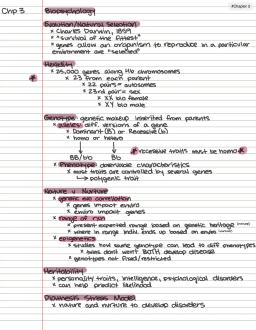 #Chapter 3
Chp 3.
Biopsychology
Evolution/Natural Selection
× Charles Darwin, 1859
× "survival of the fittest"
× genes allow an organism to reproduce in a particular
environment are "selected"
Heredity
× 25,000 genes along 46 chromosomes
* × 23 from each parent
× 22 pairs = autosomes
× 23rd pair = sex
× XX bio female
× XY bio male
Genotype: genetic makeup inherited from parents
× alleles: diff. versions of a gene
× Dominant (B) or Recessive (b)
× homo or hetero
*recessive traits must be homo*
BB/bb Bb
× Phenotype: observable characteristics
× most traits are controlled by several genes
↳ polygenic trait
Nature v. Nurture
× genetic env correlation
× genes impact enviro
× enviro impact genes
× range of rxn
× present expected range based on genetic heritage
× where in range indiv. ends up based on enviro
× epigenetics
× studies how same genotype can lead to diff phenotypes
× twins don't worry BOTH develop disease
× genotypes not fixed/restricted
Heritability
× personality traits, intelligence, psychological disorders
× can help predict likelihood
Diathesis Stress Model
× nature and nurture to develop disorders